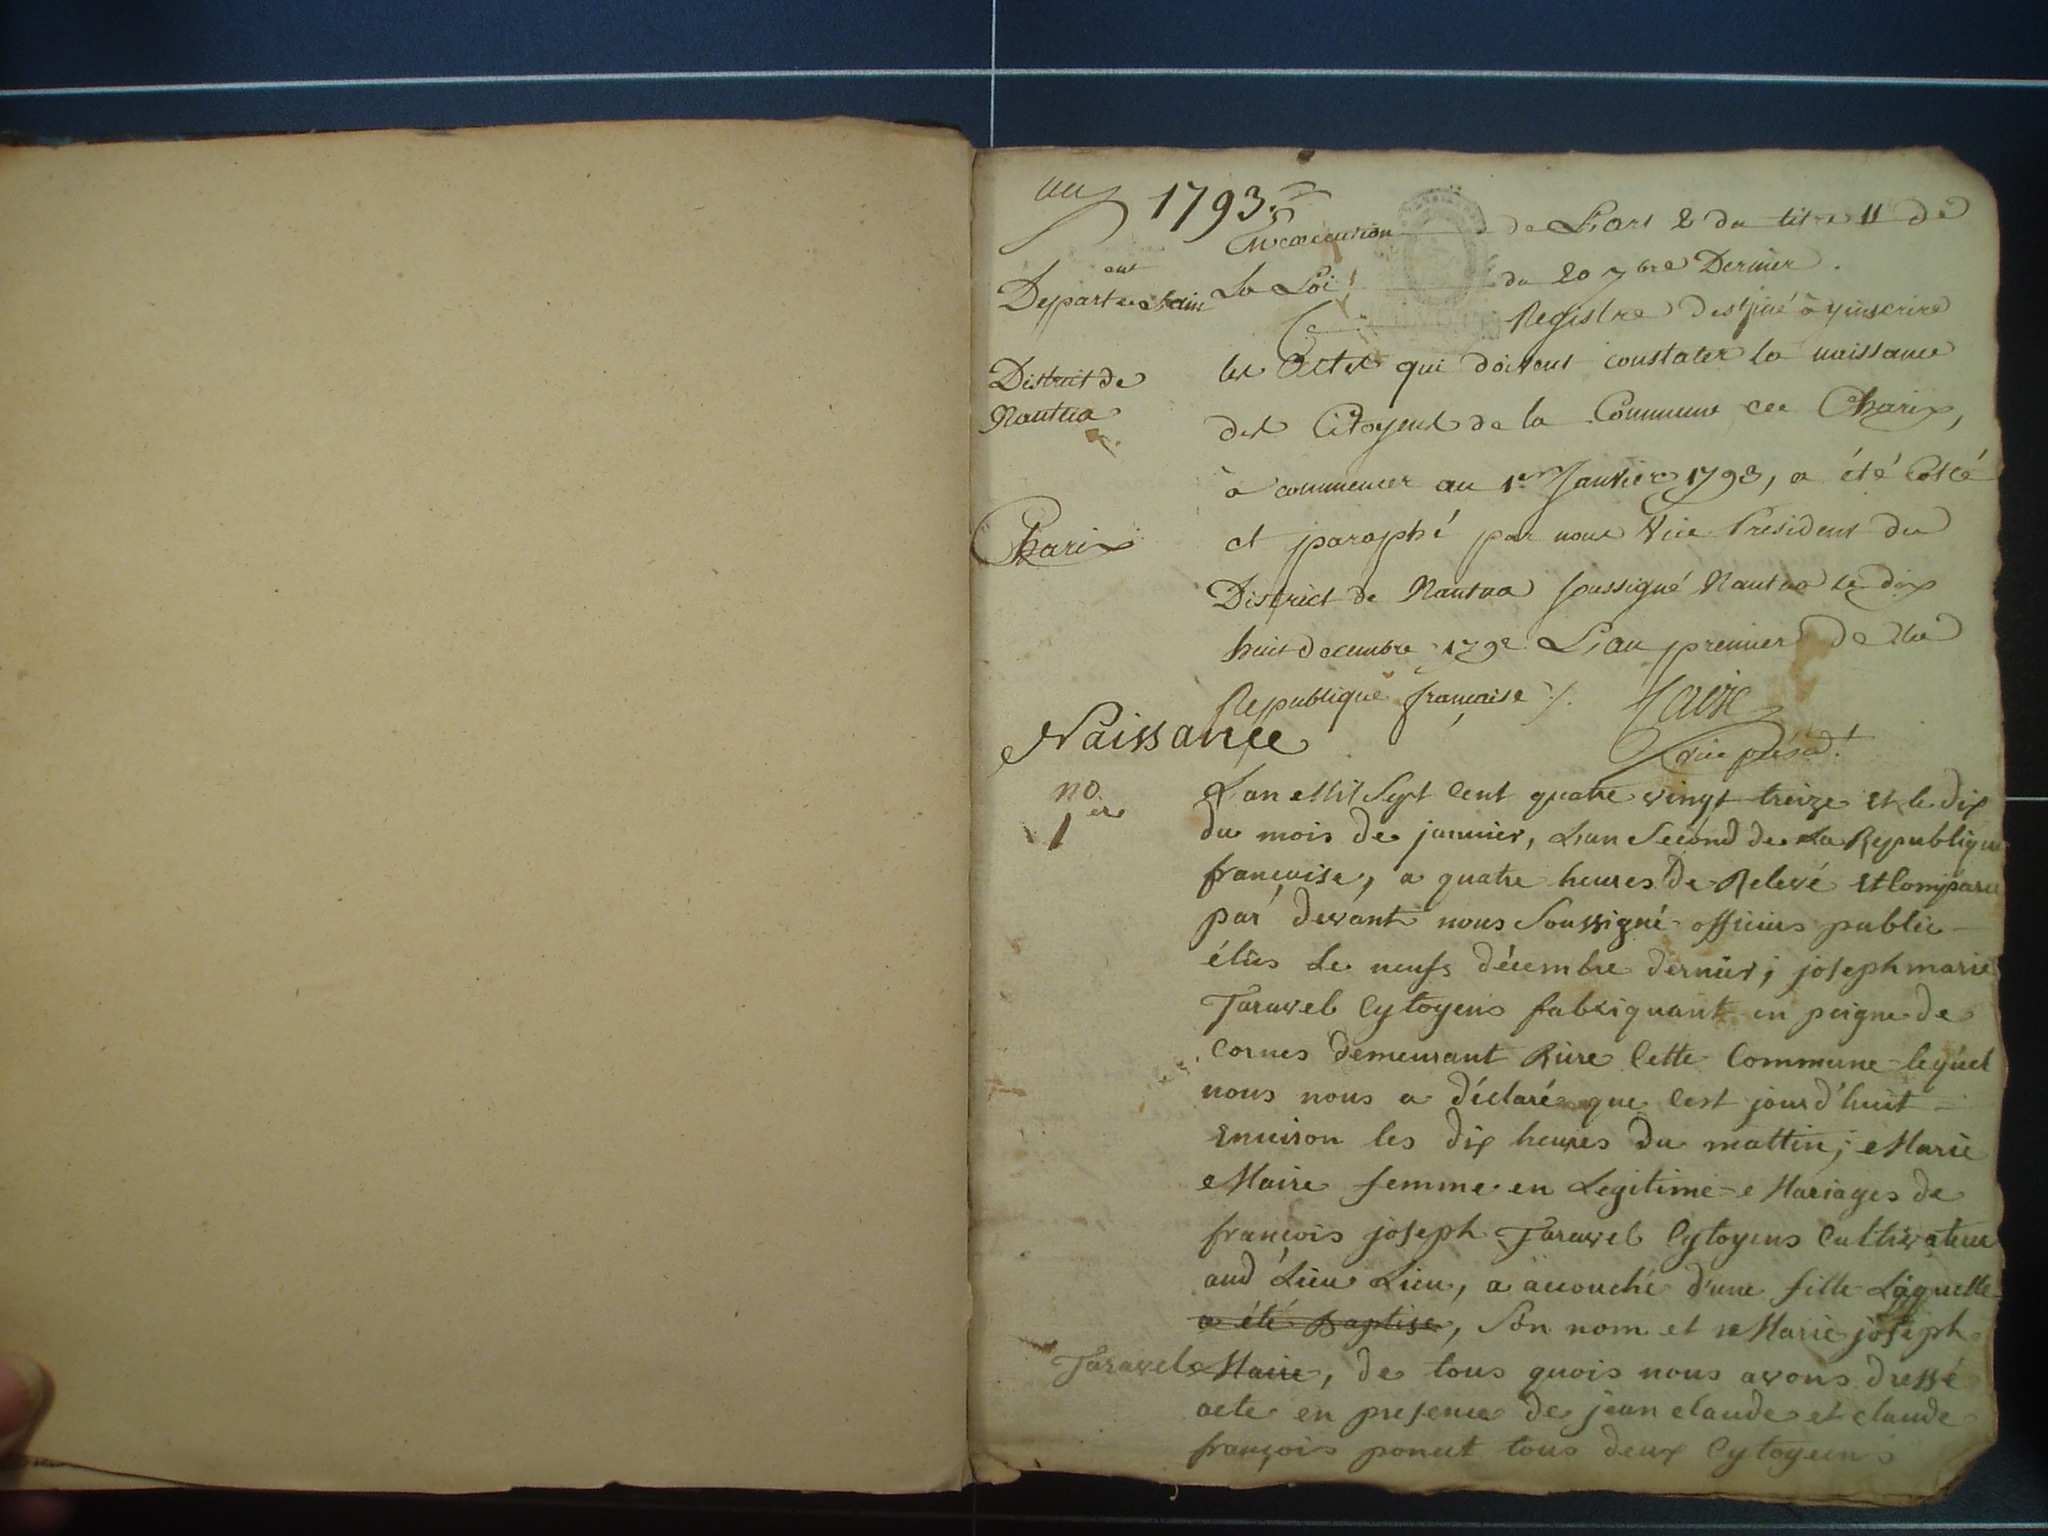 1793.
En execution de L'art 2 du titre 11 de
La Loi du 20 7bre Dernier.
Departent de L'ain
Ce Registre destiné à y inscrire
District de
Nantua
les Actes qui doivent constater la naissance
des Citoyens de la Commune de Charix,
à commencer au 1er Janvier 1793, a été Cotté
Charix
et paraphé par nous Vice President du
District de Nantua soussigné Nantua le dix
huit decembre 1792 L'an premier de la
Republique française ./.
vice présidt
Naissance
no 1er
L'an Mil Sept Cent quatre vingt treize et le dix
du mois de janvier, L'an Second de La Republique
francoise, a quatre heures de Relevé et Comparu
par devant nous Soussigné officiers public
élûs Le neufs décembre dernier; joseph marie
Taravel Cytoyens fabriquant en peigne de
Cornes demeurant Rière Cette Commune lequel
nous nous a déclaré que Cest jourd'huit
Environ les dix heures du mattin; Marie
Maire femme en Legitime Mariages de
françois joseph Taravel Cytoyens Cultivateur
aud Lieu Lieu, a accouché d'une fille Laquelle
a été Baptisé, Son nom et Marie joseph
Taravel Maire, de tous quois nous avons dressé
acte en presence de jean claude et claude
françois poncet tous deux Cytoyens